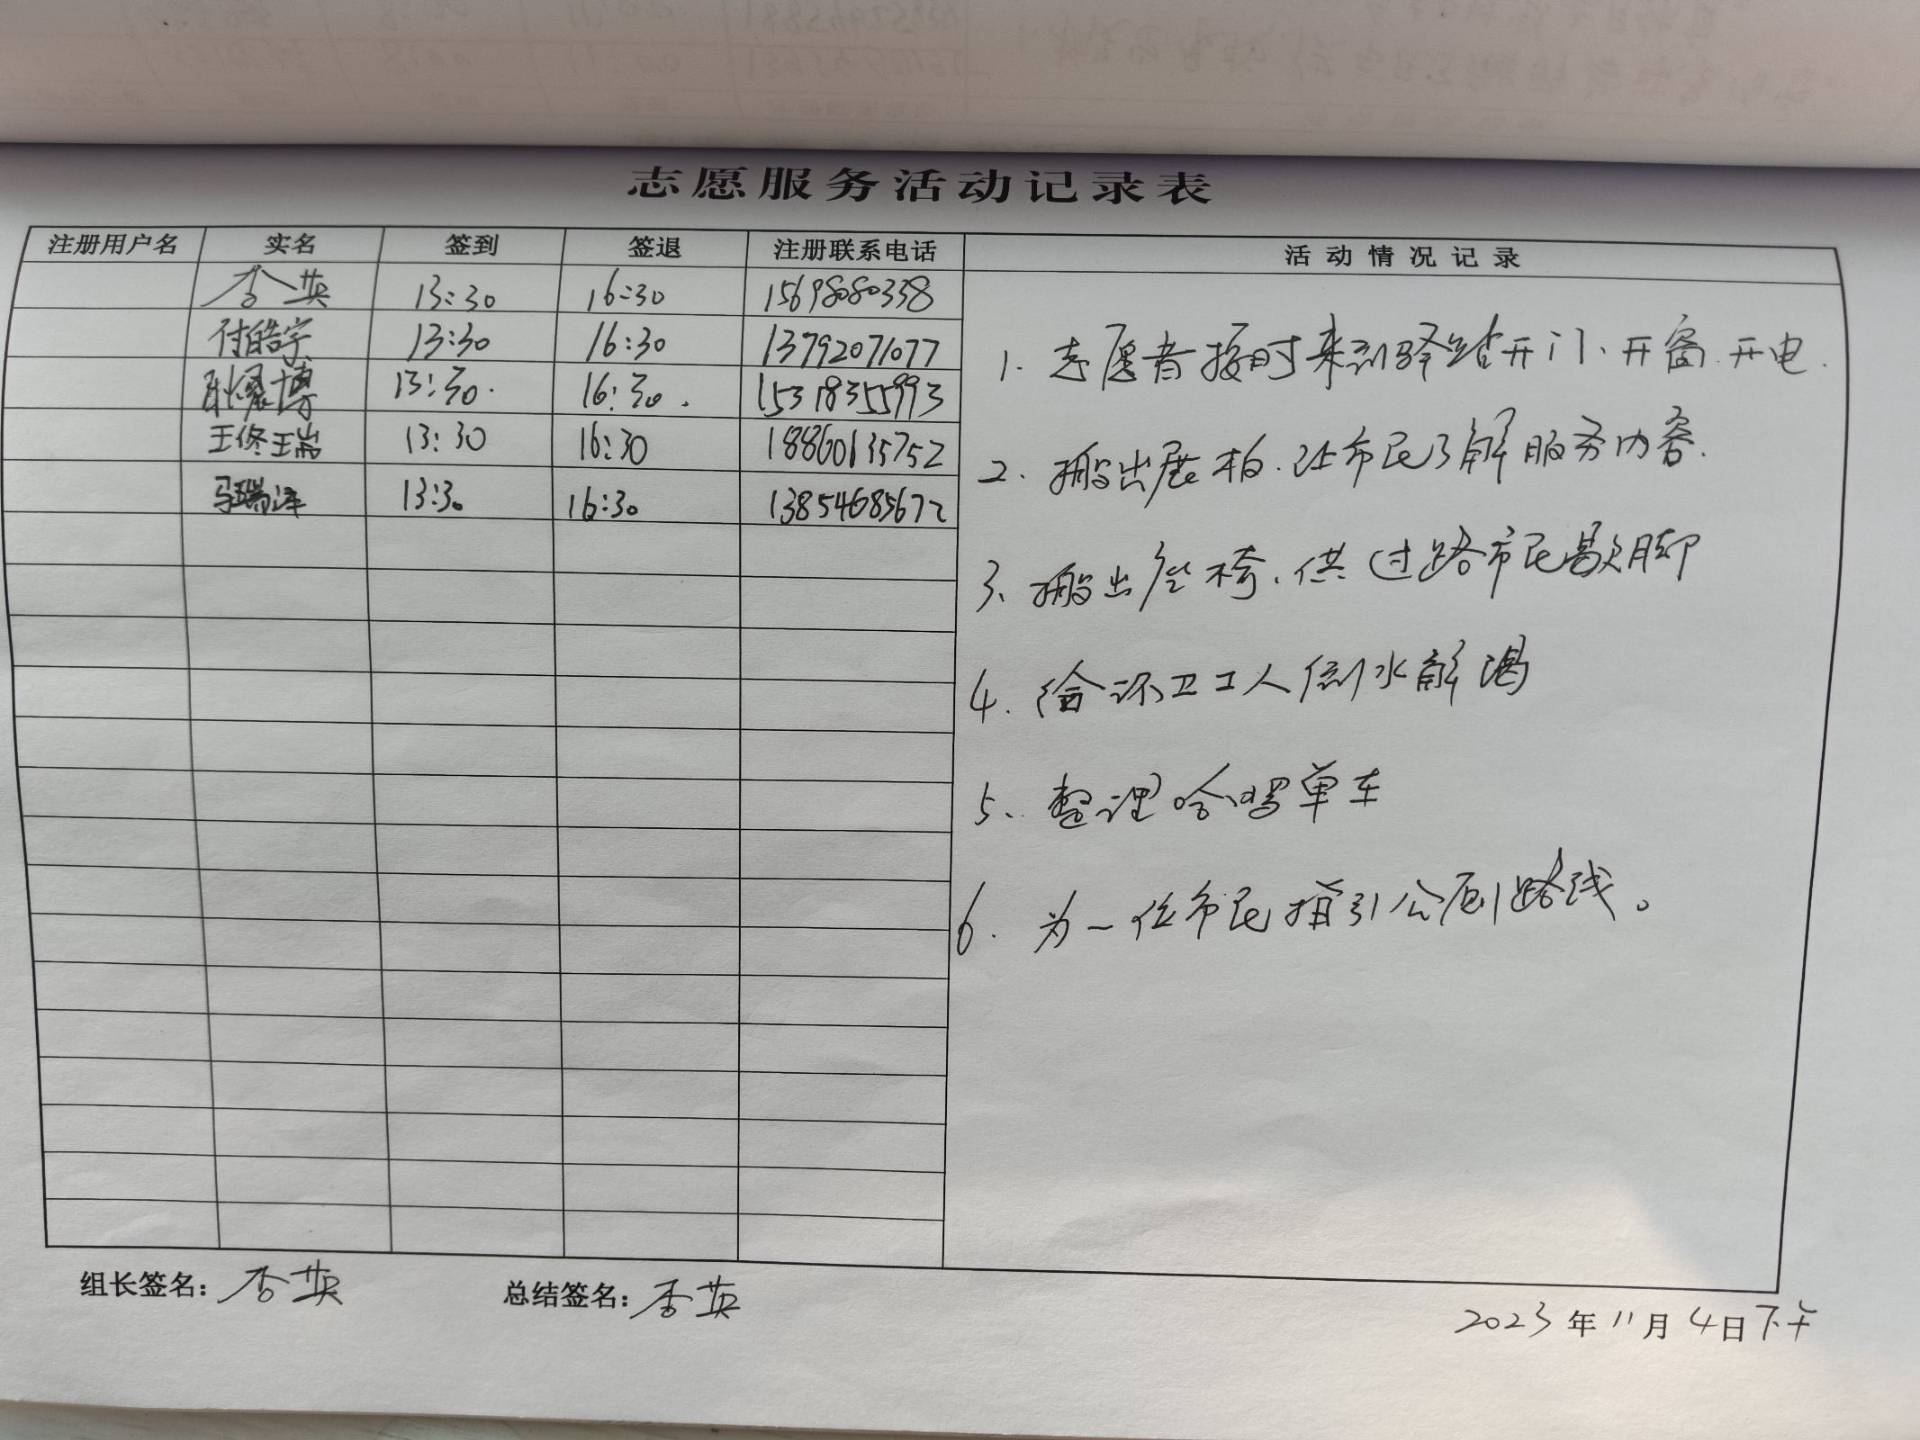 志愿服务活动记录表
注册用户名 实名 签到 签退 注册联系电话 活动情况记录
李英 13:30 16:30 15698080338
付皓宇 13:30 16:30 13792071077
耿晨博 13:30. 16:30. 15318355993
王佟瑞 13:30 16:30 18860135752
马瑞泽 13:30 16:30 13854685672
1. 志愿者按时来到驿站开门、开窗.开电.
2. 搬出展柏.让市民了解服务内容.
3、搬出座椅、供过路市民歇脚
4. 给环卫工人倒水解渴
5、整理哈啰单车
6. 为一位市民指引公厕路线。
组长签名：李英 总结签名：李英
2023年11月4日下午